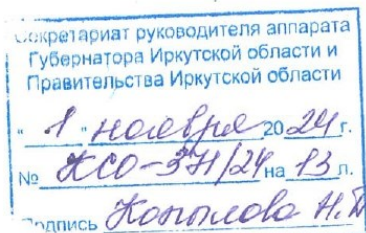 Секретариат руководителя аппарата
Губернатора Иркутской области и
Правительства Иркутской области
"1" ноября 2024 г.
№ КСО-57/24 на 13 л.
Подпись Копылова Н.